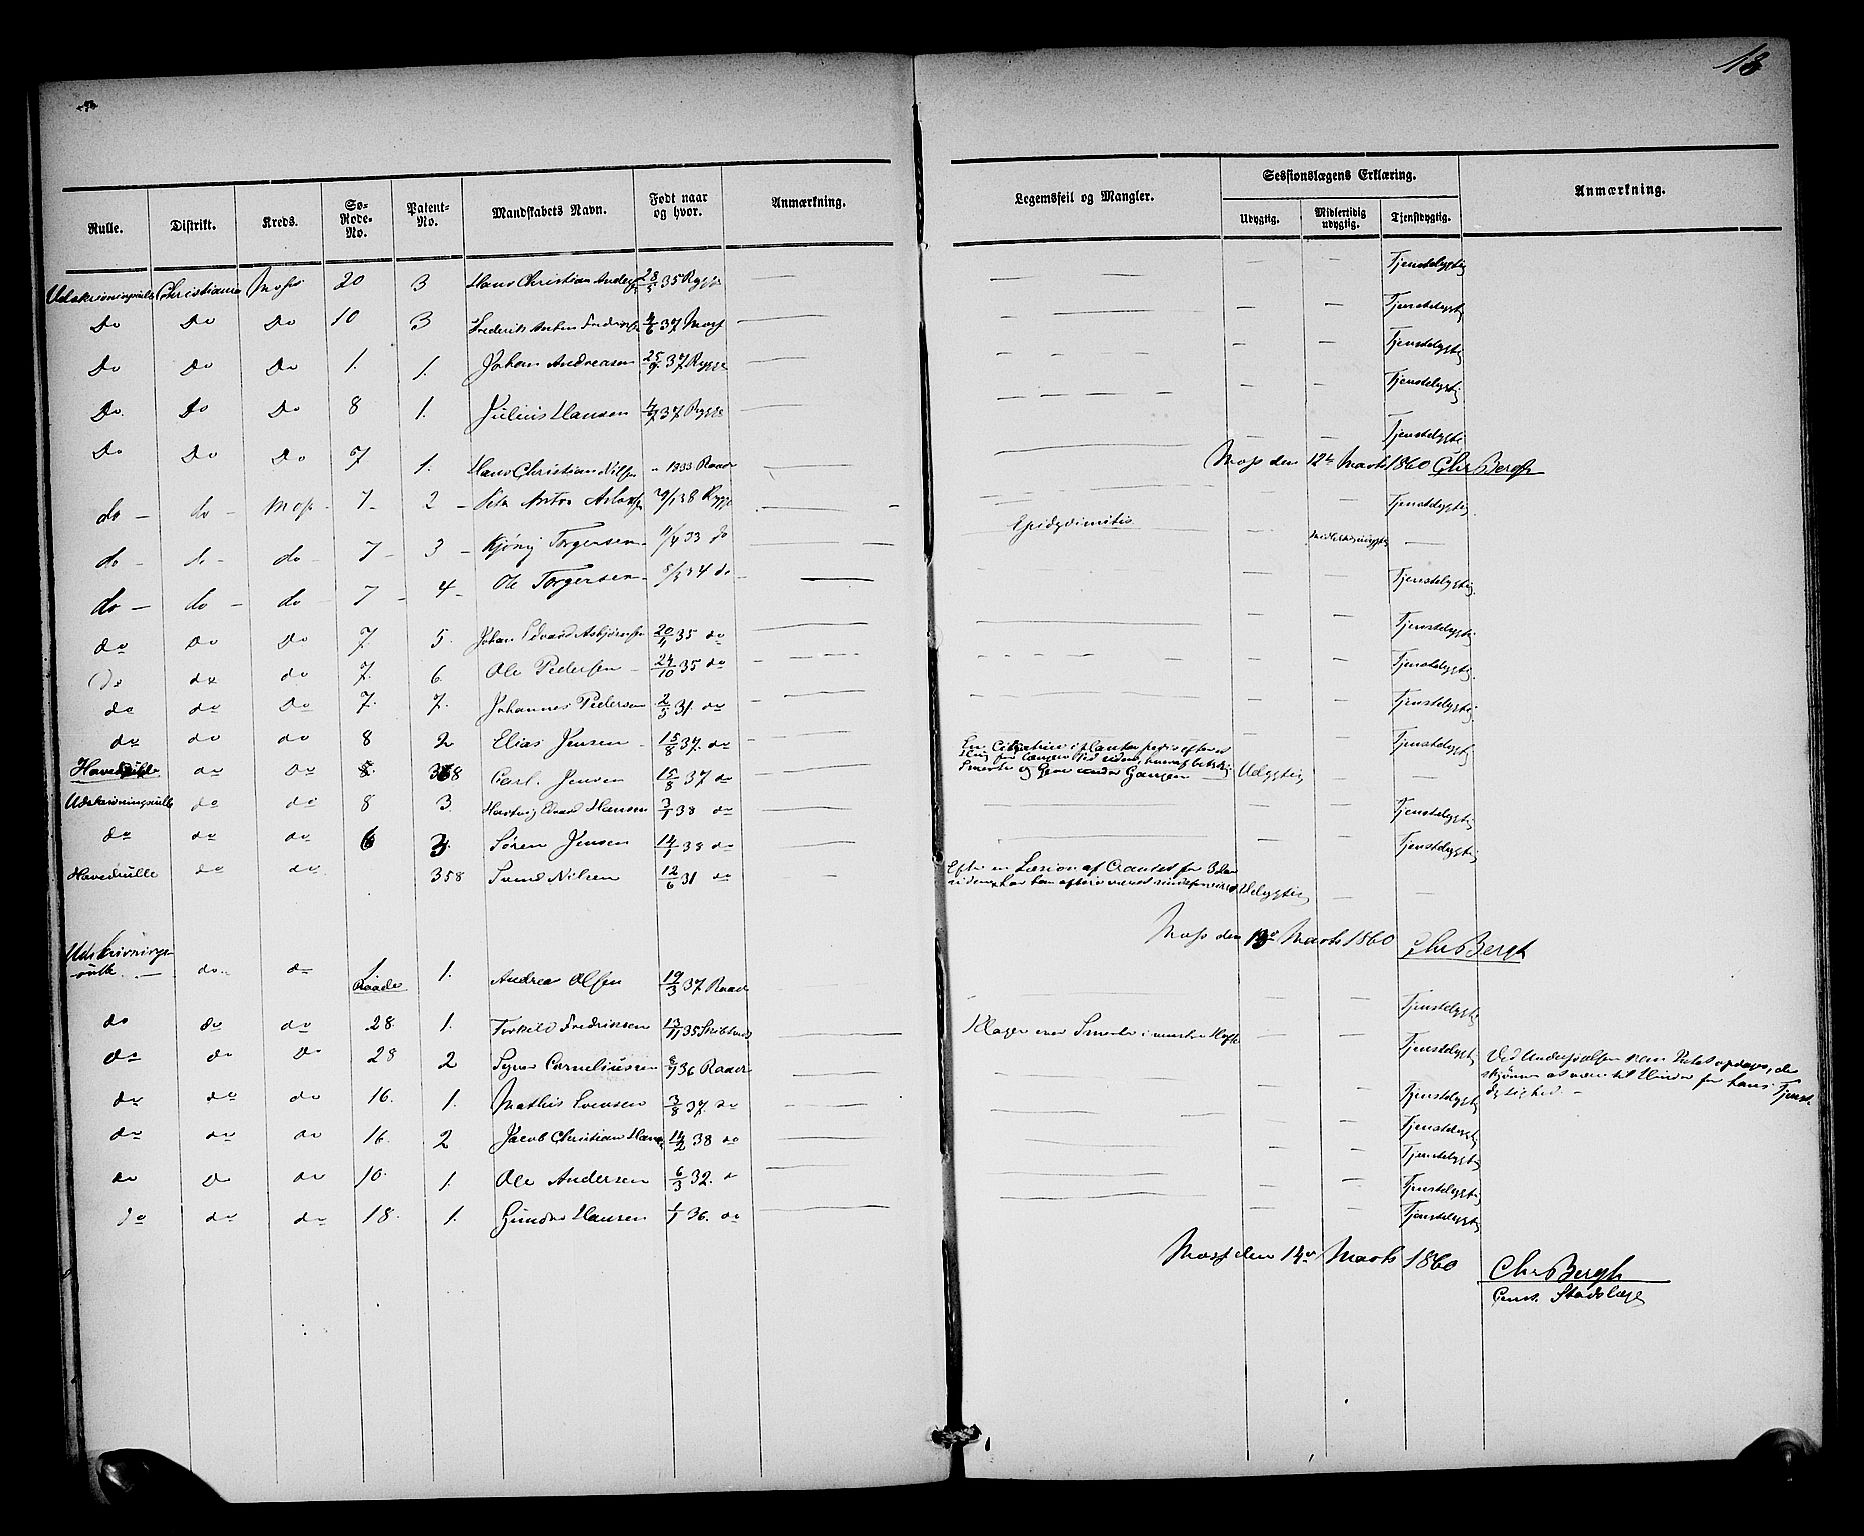 13
Rulle. Distrikt. Kreds. Sø-Rode-No. Patent-No. Mandskabets Navn. Født naar og hvor. Anmærkning.
Legemsfeil og Mangler. Sessionslægens Erklæring. Udygtig. Midlertidig udygtig. Tjenstdygtig. Anmærkning.
Udskrivningsrulle Christiania Moss 20 3 Hans Christian Anders 28/5 35 Rygge — — — — Tjenstdygtig
Do Do Do 10 3 Frederik Anton 4/6 37 Moss — — — — Tjenstdygtig
Do Do Do 1. 1. Johan Andreasen 25/9 37 Rygge — — — — Tjenstdygtig
Do. Do Do 8 1. Julius Hansen 37 Rygge — — — — Tjenstdygtig
Do Do Do 7 1. Hans Christian Nilsen 1833 Raade — — — Tjenstdygtig
Moss den 12te Marts 1860 Chr Bergh
do — do — Moss — 7 — 2 — Anton 38 Rygge — — — — Tjenstdygtig
do — do — do — 7 — 3 — Torgersen 11/4 33 do — — Epidydimitis —
do — do — do — 7 — 4 — Ole Torgersen — do — — — — — Tjenstdygtig
do Do Do 7 5. Johan Edvard Asbjørnsen 20/11 35 do — — — — Tjenstdygtig
do do do 7. 6 Ole Pedersen 24/10 35 do — — — — Tjenstdygtig
do do Do 7. 7. Johannes Pedersen 2/5 31. do — — — — Tjenstdygtig
do do do 8 2 Elias Jensen 15/8 37. do — — — Tjenstdygtig
Hovedrulle do Do 8. 368 Carl. Jensen 15/8 37 do — En Cicatrice i planta pedis efter et
Hug for længere Tid siden, hvoraf
Smerte og Gene under Gangen Udygtig — —
Udskrivningsrulle do do 8 3. Hartvig Edvard Hansen 3/1 38 do — — — — Tjenstdygtig
do do do 6 3. Søren Jensen 14/1 38 do — — — — Tjenstdygtig
Hovedrulle do do 358 Svend Nilsen 12/6 31 do — Efter en Læsion af for 3 Aar
siden, har han Udygtig — —
Moss den 13de Marts 1860 Chr Bergh
Udskrivnings-
rulle. — do.. do 1 Raade 1. Andreas Olsen 19/3 37 Raade — — — Tjenstdygtig
do do do 28. 1. Torkeld Fredriksen 13/11 35 — Klager over Smerter i venstre Hofte — — Tjenstdygtig
do do Do 28 2 Syver Corneliussen 36 Raade — — — Tjenstdygtig
Ved Undersøgelsen
skjønnes at være til Hinder for hans Tjenst-
dygtighed. —
do do do 16. 1. Mathis Svensen 3/8 37. do — — — — Tjenstdygtig
do do do 16. 2 Jacob Christian Hans 14/2 38 do — — — Tjenstdygtig
do Do do 10. 1. Ole Andersen 6/3 32. do — — — — Tjenstdygtig
do do do 18. 1. Gunder Hansen 1/1 36. do — — — — Tjenstdygtig
Moss den 14de Marts 1860
Chr Bergh
Const. Stadslæge